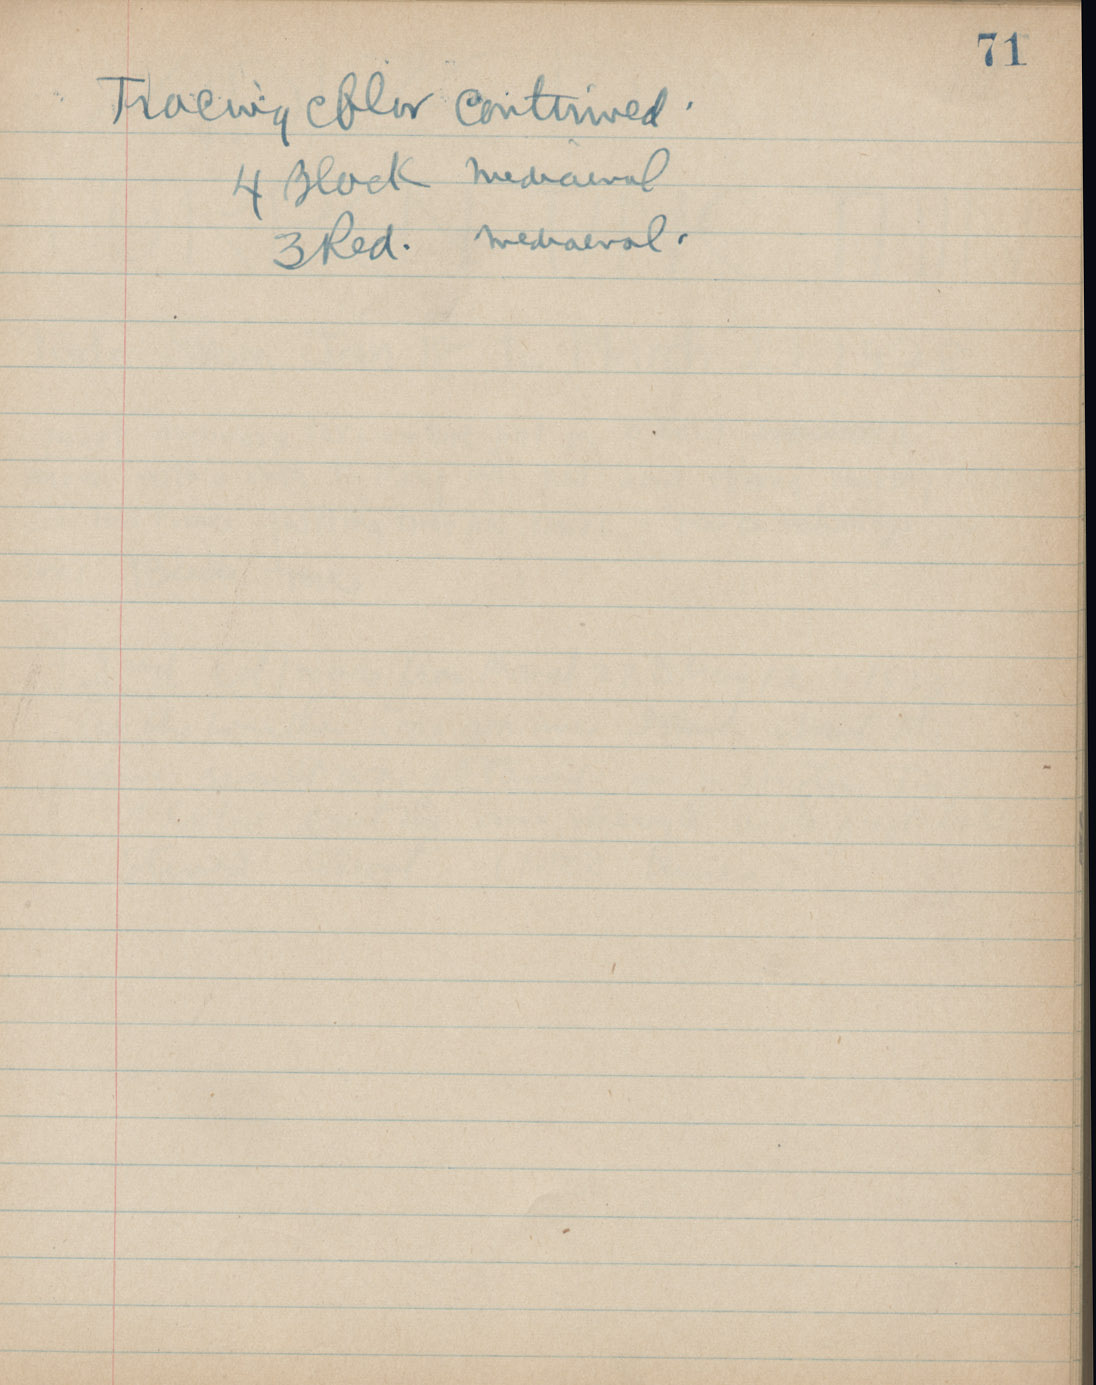 71
Tracing color continued.
4 Black mediaeval
3 Red. mediaeval.